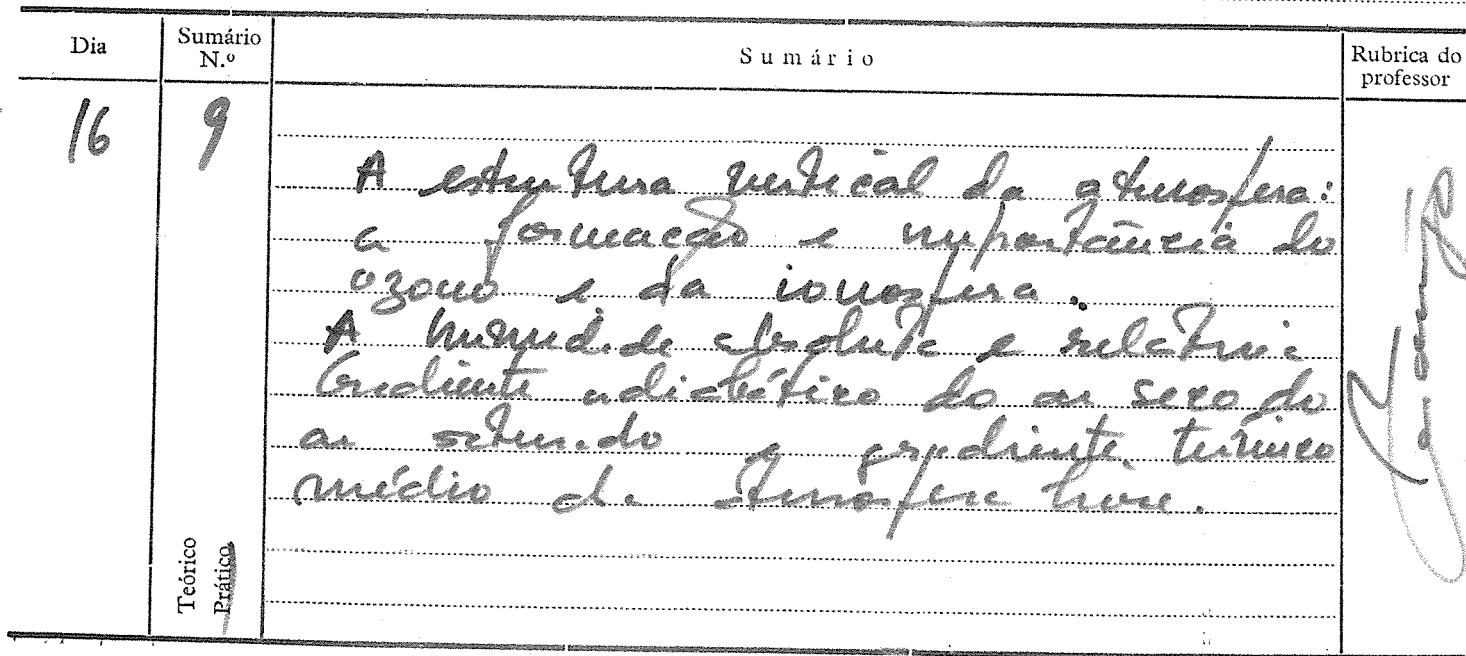 Dia
Sumário
N.º
Sumário
Rubrica do
professor
16
9
A estrutura vertical da atmosfera:
a formação e importância do
ozono e da ionosfera.
A humidade absoluta e relativa
Gradiente adiabático do ar seco do
ar saturado e gradiente térmico
médio da atmosfera livre.
Teórico
Prático